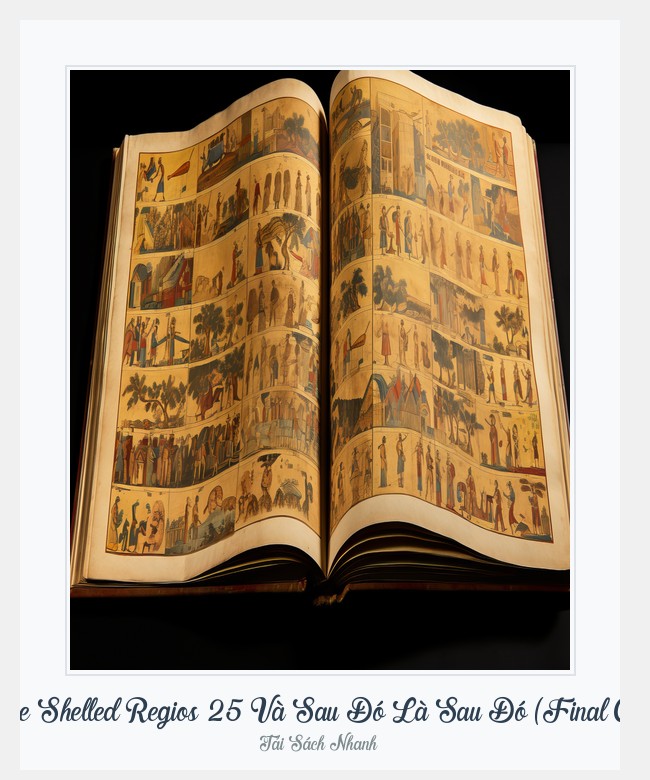 e Shelled Regios 25 Và Sau Đó Là Sau Đó (Final
Tải Sách Nhanh